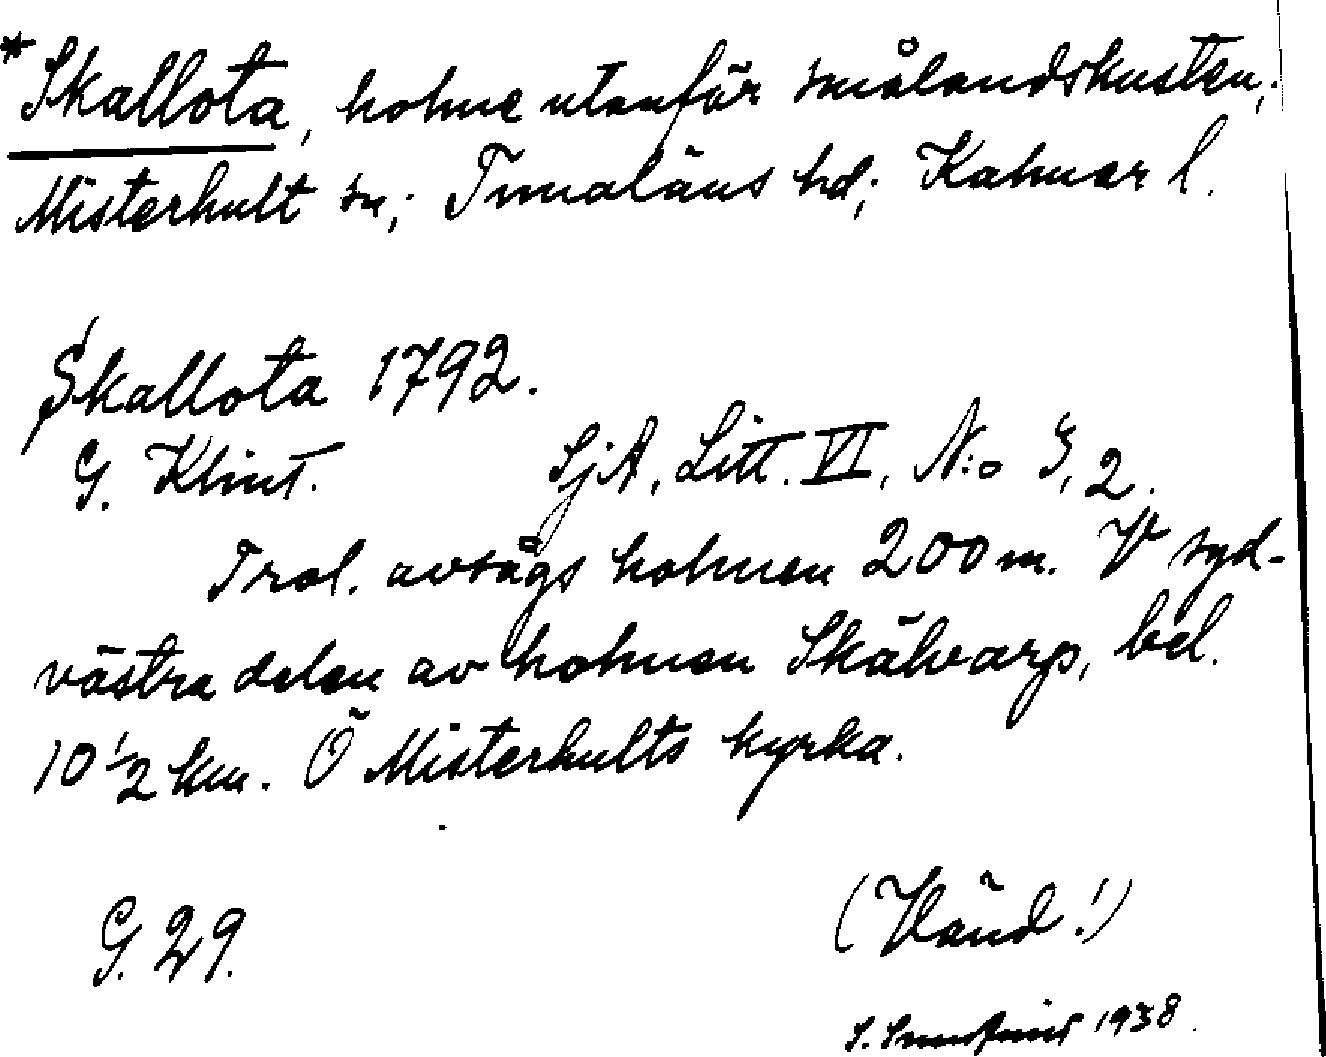 *Skallota, holme utanför smålandskusten;
Misterhult sn; Tunaläns hd; Kalmar l.
Skallota 1792.
G. Klint. SjA, Litt. VI, N:o 3, 2.
Trol. avsågs holmen 200 m. V syd-
västra delen av holmen Skälvarp, bel.
10 1/2 km. Ö Misterhults kyrka.
G. 29.
(Vänd!)
S. 1938.